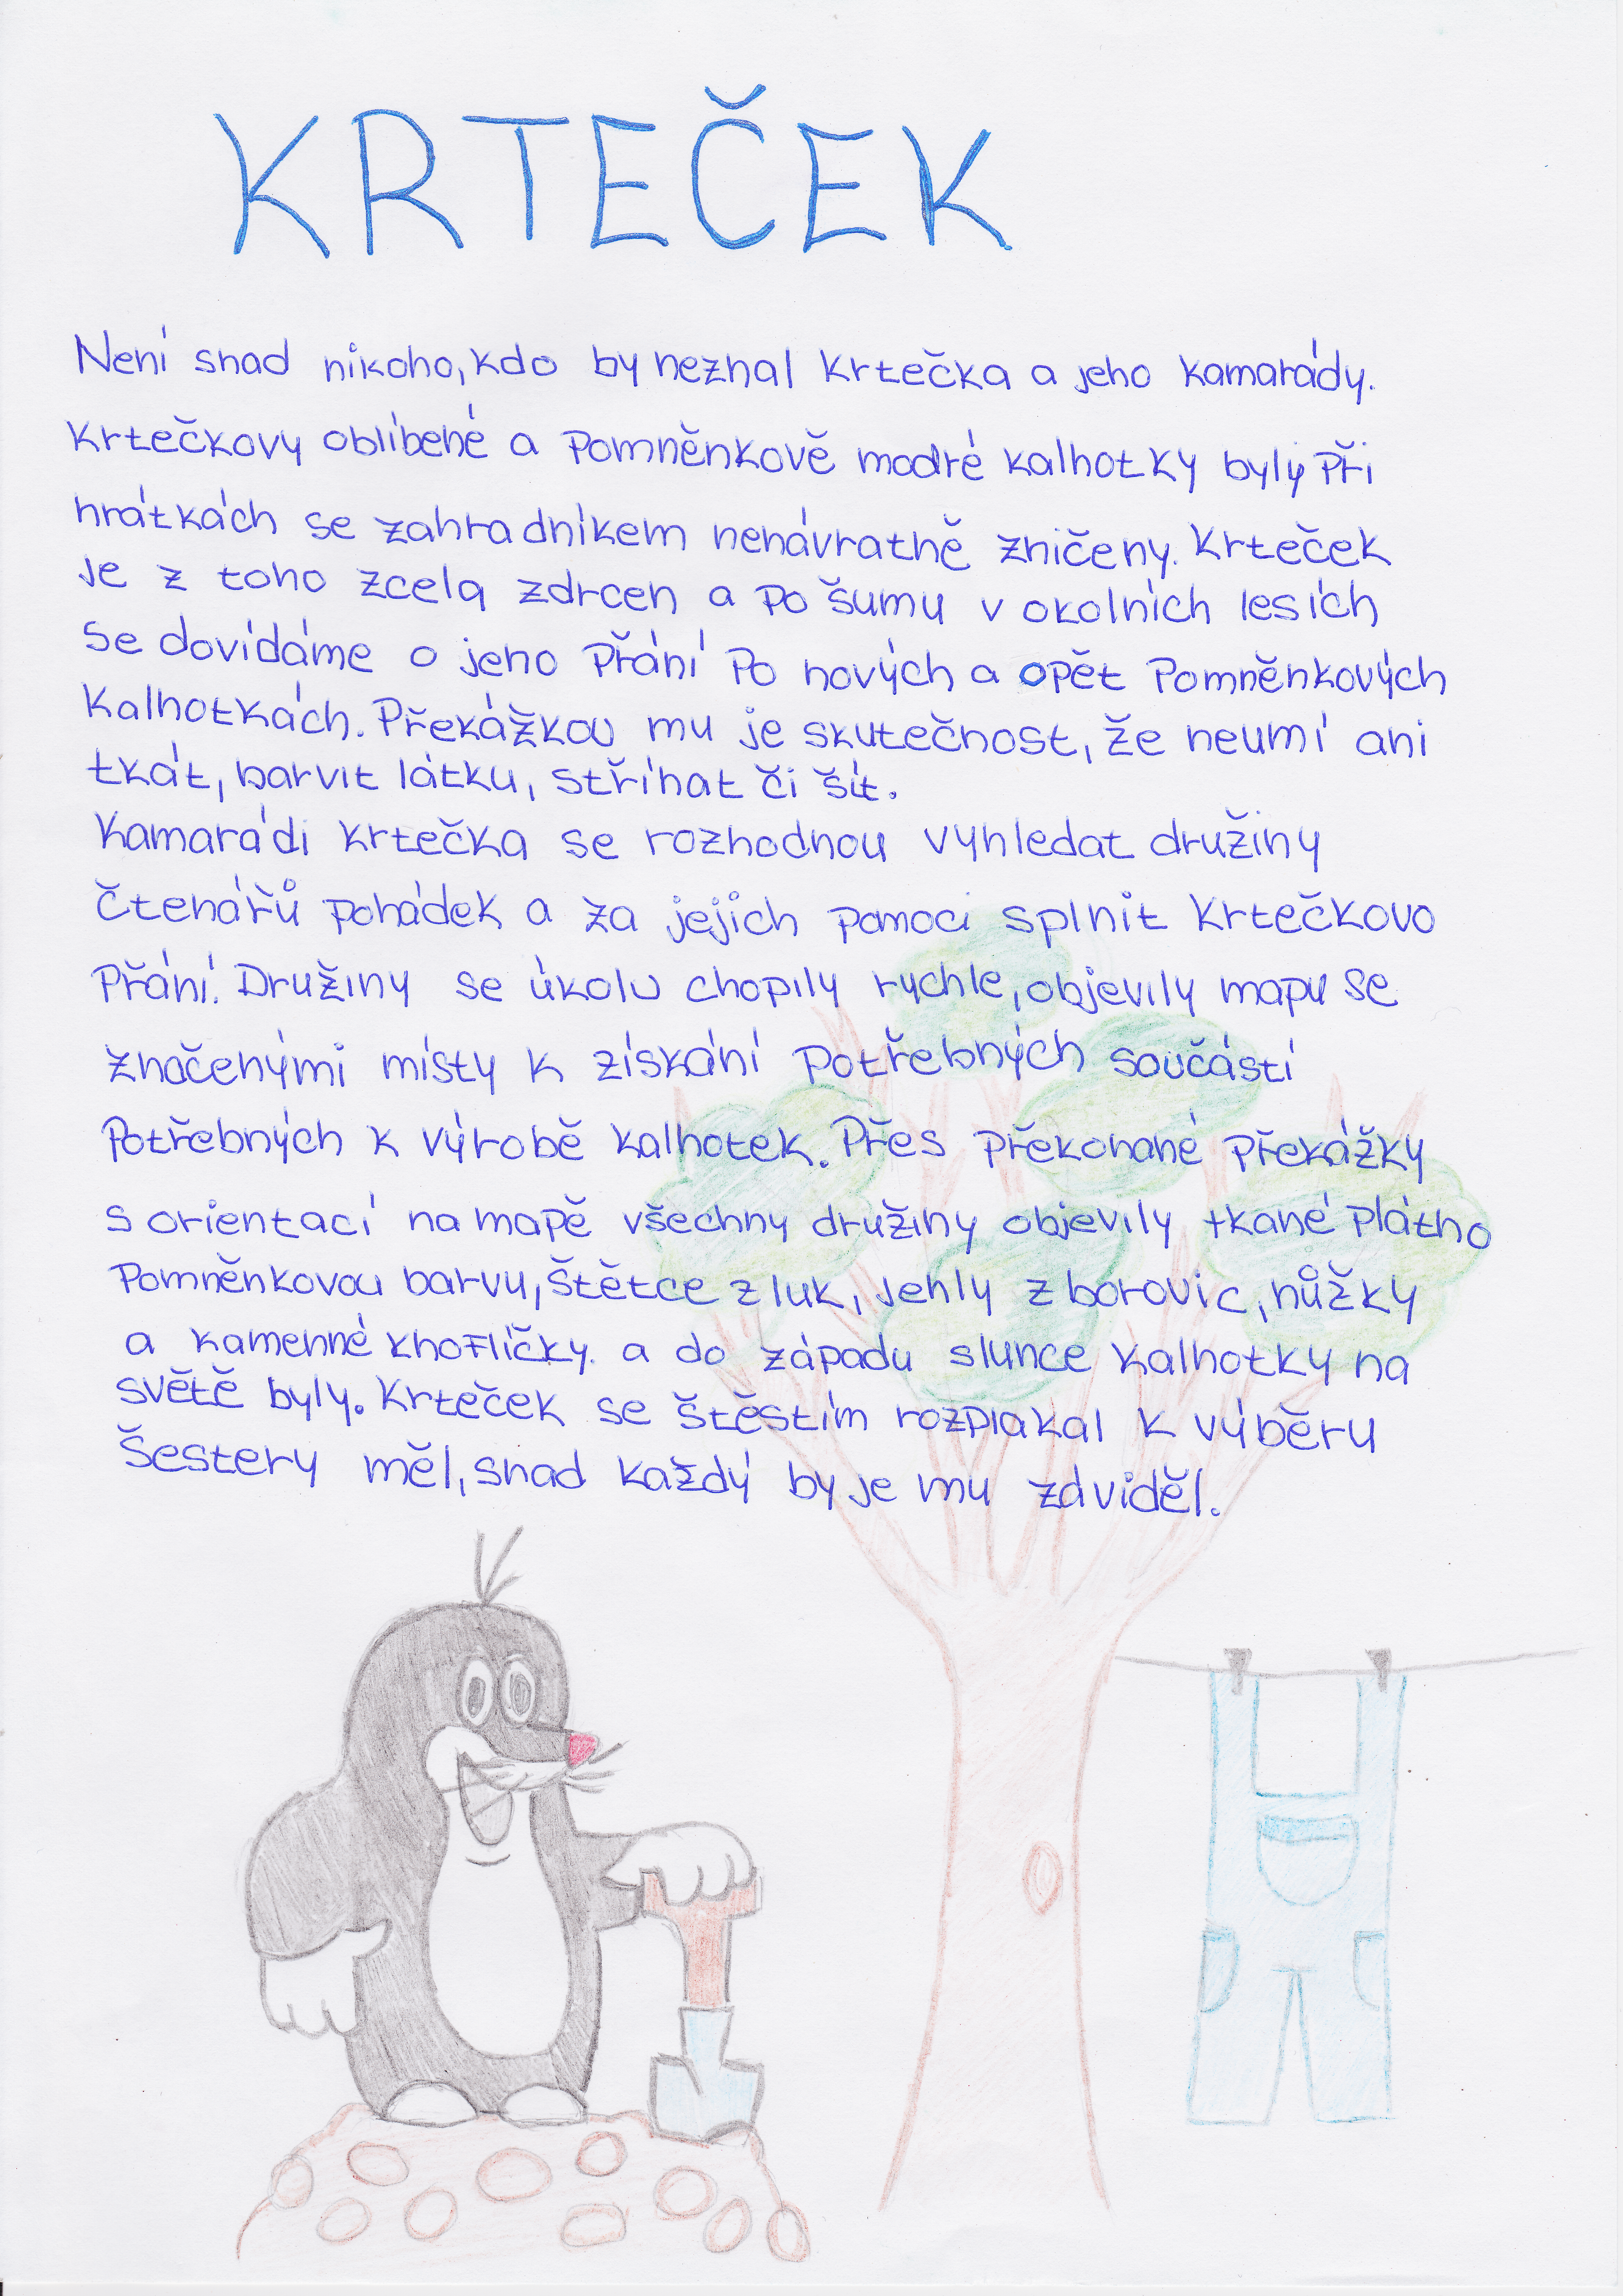 KRTEČEK
Není snad nikoho, kdo by neznal Krtečka a jeho kamarády.
Krtečkovy oblíbené a pomněnkově modré kalhotky byly při
hrátkách se zahradníkem nenávratně zničeny. Krteček
je z toho zcela zdrcen a po šumu v okolních lesích
se dovídáme o jeho přání po nových a opět pomněnkových
kalhotkách. Překážkou mu je skutečnost, že neumí ani
tkát, barvit látku, stříhat či šít.
Kamarádi krtečka se rozhodnou vyhledat družiny
čtenářů pohádek a za jejich pomoci splnit Krtečkovo
přání. Družiny se úkolu chopily rychle, objevily mapu se
značenými místy k získání potřebných součástí
potřebných k výrobě kalhotek. Přes překonané překážky
s orientací na mapě všechny družiny objevily tkané plátno
pomněnkovou barvu, štětce z luk, jehly z borovic, nůžky
a kamenné knoflíčky. a do západu slunce kalhotky na
světě byly. Krteček se štěstím rozplakal k výběru
šestery měl, snad každý by je mu záviděl.